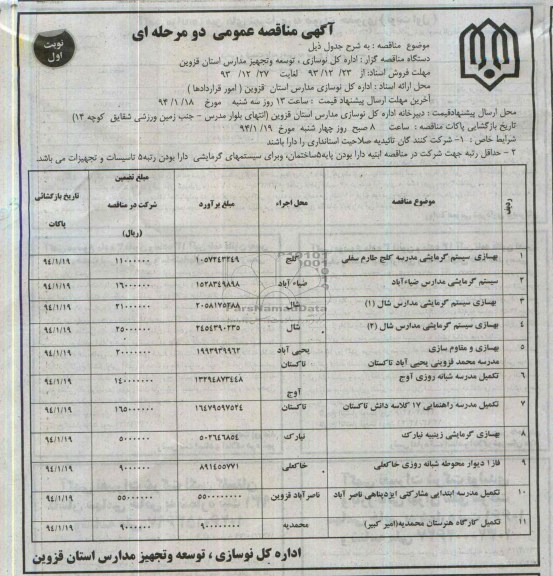 آگهی مناقصه عمومی دو مرحله ای
نوبت اول
موضوع مناقصه : به شرح جدول ذیل
دستگاه مناقصه گزار : اداره کل نوسازی ، توسعه وتجهیز مدارس استان قزوین
مهلت فروش اسناد: از ۲۳ /۱۲/ ۹۳ لغایت ۲۷ /۱۲/ ۹۳
محل ارائه اسناد : اداره کل نوسازی مدارس استان قزوین ( امور قراردادها )
آخرین مهلت ارسال پیشنهاد قیمت : ساعت ۱۳ روز سه شنبه مورخ ۹۴/۱/۱۸
محل ارسال پیشنهادقیمت : دبیرخانه اداره کل نوسازی مدارس استان قزوین (انتهای بلوار مدرس - جنب زمین ورزشی شقایق کوچه ۱۴)
تاریخ بازگشایی پاکات مناقصه : ساعت ۸ صبح روز چهار شنبه مورخ ۹۴/۱/۱۹
شرایط خاص : ۱- شرکت کنند گان تائیدیه صلاحیت استانداری را دارا باشند
۲ - حداقل رتبه جهت شرکت در مناقصه ابنیه دارا بودن پایه۵ساختمان، وبرای سیستمهای گرمایشی دارا بودن رتبه۵ تاسیسات و تجهیزات می باشد
ردیف موضوع مناقصه محل اجراء مبلغ برآورد مبلغ تضمین شرکت در مناقصه (ریال) تاریخ بازگشائی پاکات
۱ بهسازی سیستم گرمایشی مدرسه کلج طارم سفلی کلج ۱۰۵۷۲۴۳۲۴۹ ۱۱۰۰۰۰۰۰ ۹۴/۱/۱۹
۲ سیستم گرمایشی مدارس ضیاءآباد ضیاء آباد ۱۵۲۸۳۴۹۸۹۸ ۱۶۰۰۰۰۰۰ ۹۴/۱/۱۹
۳ بهسازی سیستم گرمایشی مدارس شال (۱) شال ۲۱۰۰۰۰۰۰ ۹۴/۱/۱۹
۴ بهسازی سیستم گرمایشی مدارس شال (۲) شال ۲۴۵۴۳۹۰۲۳۵ ۲۵۰۰۰۰۰۰ ۹۴/۱/۱۹
۵ بهسازی و مقاوم سازی مدرسه محمد قزوینی یحیی آباد تاکستان یحیی آباد تاکستان ۱۹۹۳۹۳۹۹۶۲ ۲۰۰۰۰۰۰۰ ۹۴/۱/۱۹
۶ تکمیل مدرسه شبانه روزی آوج آوج ۱۳۲۹۴۸۷۳۴۴۸ ۱۴۰۰۰۰۰۰۰ ۹۴/۱/۱۹
۷ تکمیل مدرسه راهنمایی ۱۷ کلاسه دانش تاکستان تاکستان ۱۶۴۷۹۵۹۷۵۲۴ ۱۶۵۰۰۰۰۰۰ ۹۴/۱/۱۹
۸ بهسازی گرمایشی زینبیه نیارک نیارک ۵۰۲۶۴۶۸۵۴ ۵۰۰۰۰۰۰ ۹۴/۱/۱۹
۹ فاز۱ دیوار محوطه شبانه روزی خاکعلی خاکعلی ۸۹۱۴۵۵۷۷۱ ۹۰۰۰۰۰۰ ۹۴/۱/۱۹
۱۰ تکمیل مدرسه ابتدایی مشارکتی ایزدپناهی ناصر آباد ناصرآباد قزوین ۵۵۰۰۰۰۰۰۰۰ ۵۵۰۰۰۰۰۰ ۹۴/۱/۱۹
۱۱ تکمیل کارگاه هنرستان محمدیه(امیر کبیر) محمدیه ۹۰۰۰۰۰۰۰۰ ۹۰۰۰۰۰۰ ۹۴/۱/۱۹
اداره کل نوسازی ، توسعه وتجهیز مدارس استان قزوین
ParsNamadData